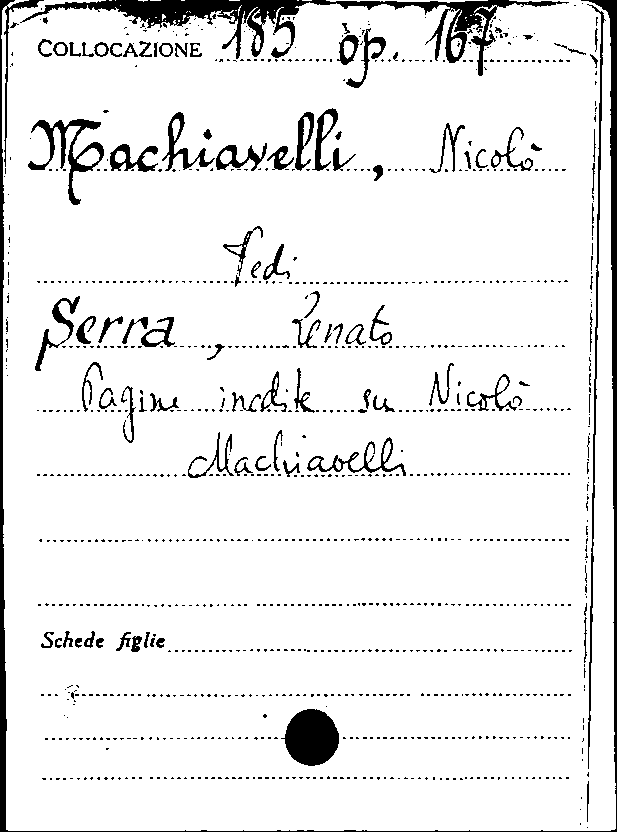 COLLOCAZIONE 185 op. 167
Machiavelli, Nicolò
Vedi
Serra, Renato
Pagine inedite su Nicolò
Machiavelli
Schede figlie